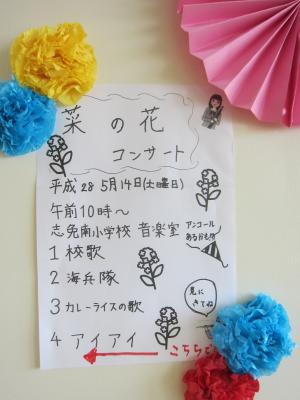 菜の花
コンサート
平成28 5月14日(土曜日)
午前10時～
志免南小学校 音楽室
アンコール
あるかも
1 校歌
2 海兵隊
見に
きてね
3 カレーライスの歌
4 アイアイ
こちら